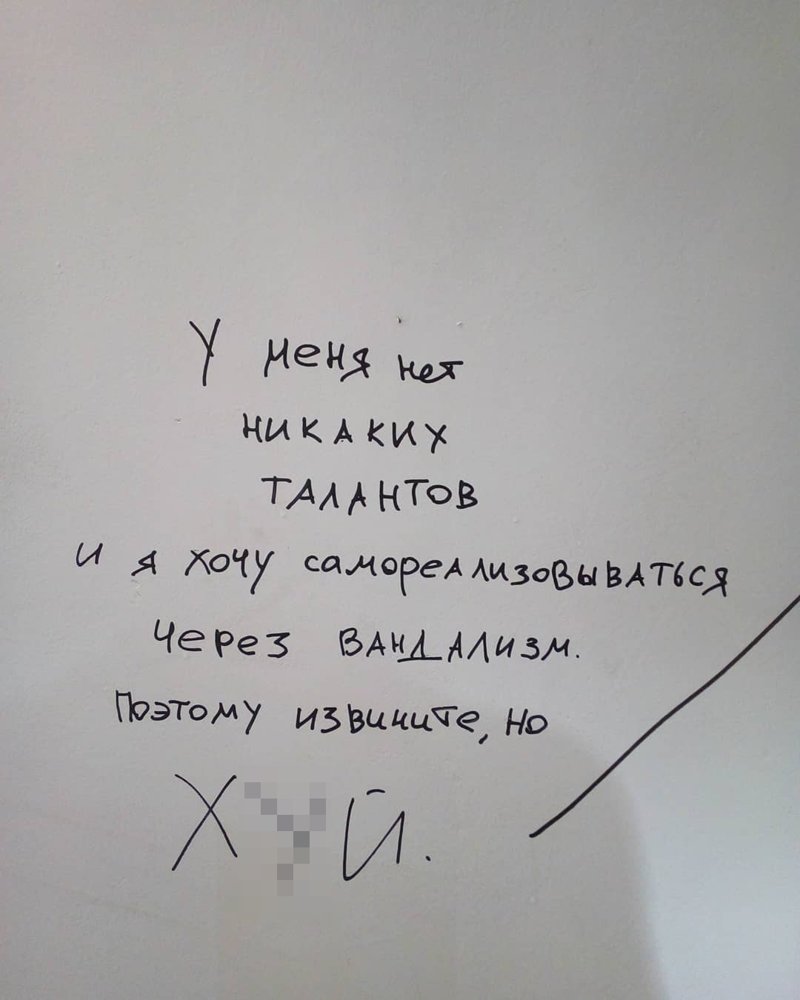 У меня нет
НИКАКИХ
ТАЛАНТОВ
и я хочу самореализовываться
через ВАНДАЛИЗМ.
Поэтому извините, но
ХУЙ.